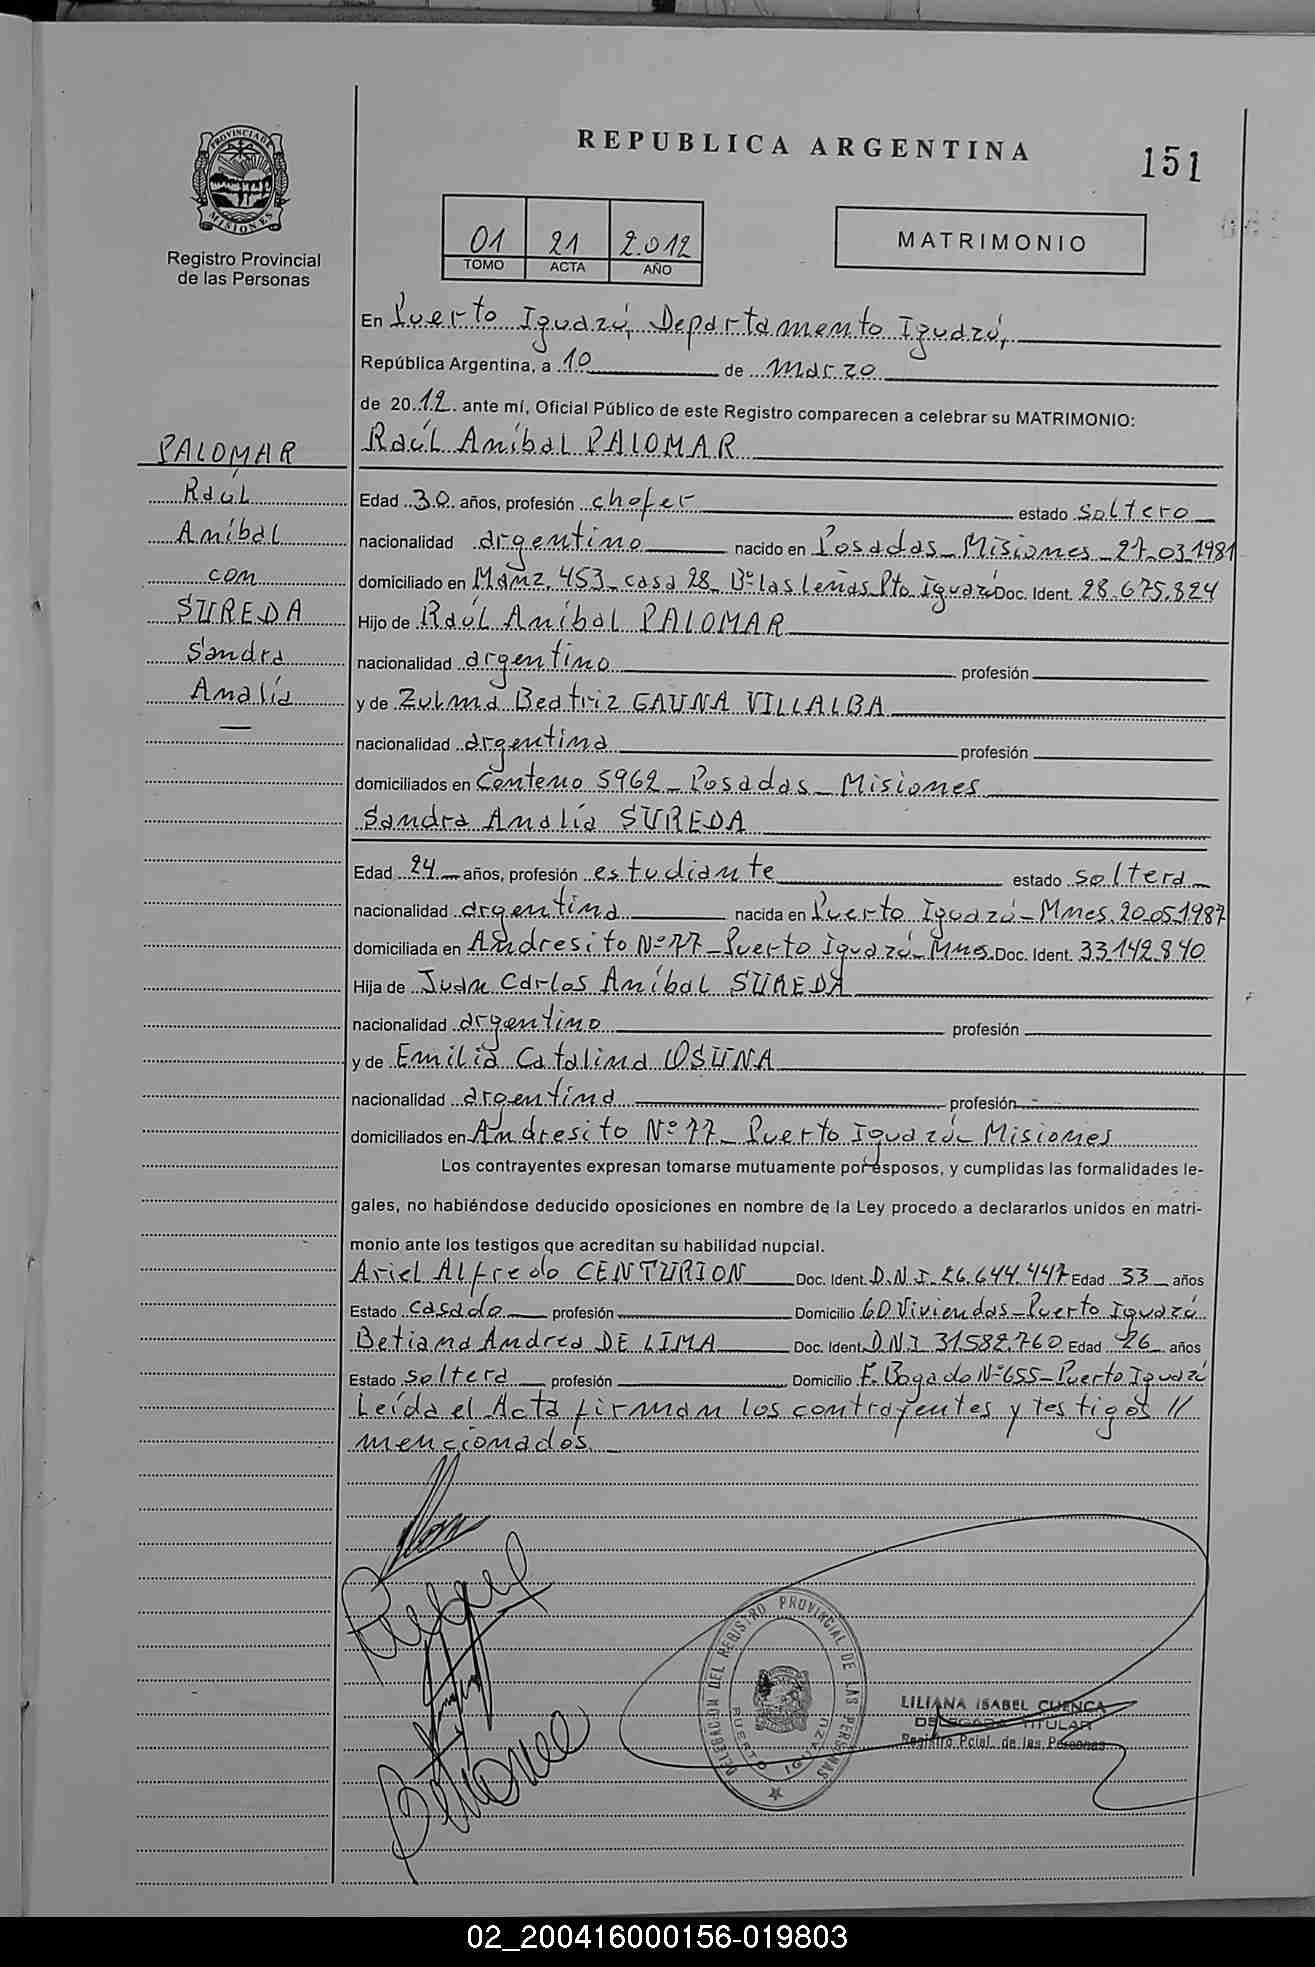 REPUBLICA ARGENTINA
151
PROVINCIA DE
MISIONES
Registro Provincial
de las Personas
01 21 2.012
TOMO ACTA AÑO
MATRIMONIO
En Puerto Iguazú, Departamento Iguazú,
República Argentina, a 10 de marzo
de 20.12. ante mí, Oficial Público de este Registro comparecen a celebrar su MATRIMONIO:
PALOMAR
Raúl
Aníbal
con
SUREDA
Sandra
Analía
Raúl Aníbal PALOMAR
Edad 30 años, profesión chofer estado soltero
nacionalidad argentino nacido en Posadas - Misiones - 27-03-1981
domiciliado en Manz. 453 - casa 28 - Bº las Leñas Pto Iguazú Doc. Ident. 28.675.824
Hijo de Raúl Aníbal PALOMAR
nacionalidad argentino profesión
y de Zulma Beatriz GAUNA VILLALBA
nacionalidad argentina profesión
domiciliados en Centeno 5962 - Posadas - Misiones
Sandra Analía SUREDA
Edad 24 años, profesión estudiante estado soltera
nacionalidad argentina nacida en Puerto Iguazú - Mnes. 20-05-1987
domiciliada en Andresito Nº 77 - Puerto Iguazú - Mnes. Doc. Ident. 33.142.840
Hija de Juan Carlos Aníbal SUREDA
nacionalidad argentino profesión
y de Emilia Catalina OSUNA
nacionalidad argentina profesión
domiciliados en Andresito Nº 77 - Puerto Iguazú - Misiones
Los contrayentes expresan tomarse mutuamente por esposos, y cumplidas las formalidades le-
gales, no habiéndose deducido oposiciones en nombre de la Ley procedo a declararlos unidos en matri-
monio ante los testigos que acreditan su habilidad nupcial.
Ariel Alfredo CENTURION Doc. Ident. D.N.I. 26.644.447 Edad 33 años
Estado casado profesión Domicilio 60 Viviendas - Puerto Iguazú
Betiana Andrea DE LIMA Doc. Ident. D.N.I 31.582.760 Edad 26 años
Estado soltera profesión Domicilio F. Bogado Nº 655 - Puerto Iguazú
Leída el Acta firman los contrayentes y testigos //
mencionados.
DELEGACION DEL REGISTRO PROVINCIAL DE LAS PERSONAS
PUERTO IGUAZU
LILIANA ISABEL CUENCA
DELEGADA TITULAR
Registro Pcial. de las Personas
02_200416000156-019803